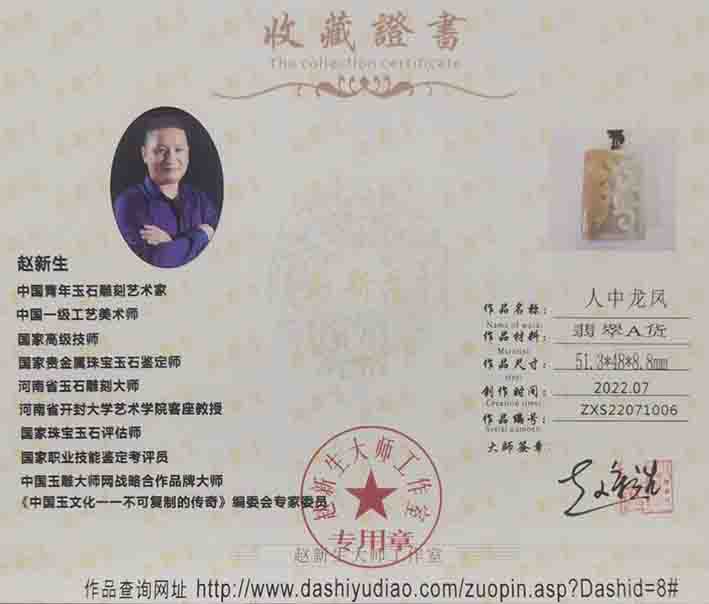 收藏證書
The collection certificate
赵新生
中国青年玉石雕刻艺术家
中国一级工艺美术师
国家高级技师
国家贵金属珠宝玉石鉴定师
河南省玉石雕刻大师
河南省开封大学艺术学院客座教授
国家珠宝玉石评估师
国家职业技能鉴定考评员
中国玉雕大师网战略合作品牌大师
《中国玉文化一一不可复制的传奇》编委会专家委员
作品名称: 人中龙凤
Name of works
作品材料: 翡翠A货
Material
作品尺寸: 51.3*48*8.8mm
创作时间: 2022.07
Creation time
作品编号: ZXS22071006
大师签章
赵新生大师工作室
专用章
赵新生大师工作室
作品查询网址 http://www.dashiyudiao.com/zuopin.asp?Dashid=8#